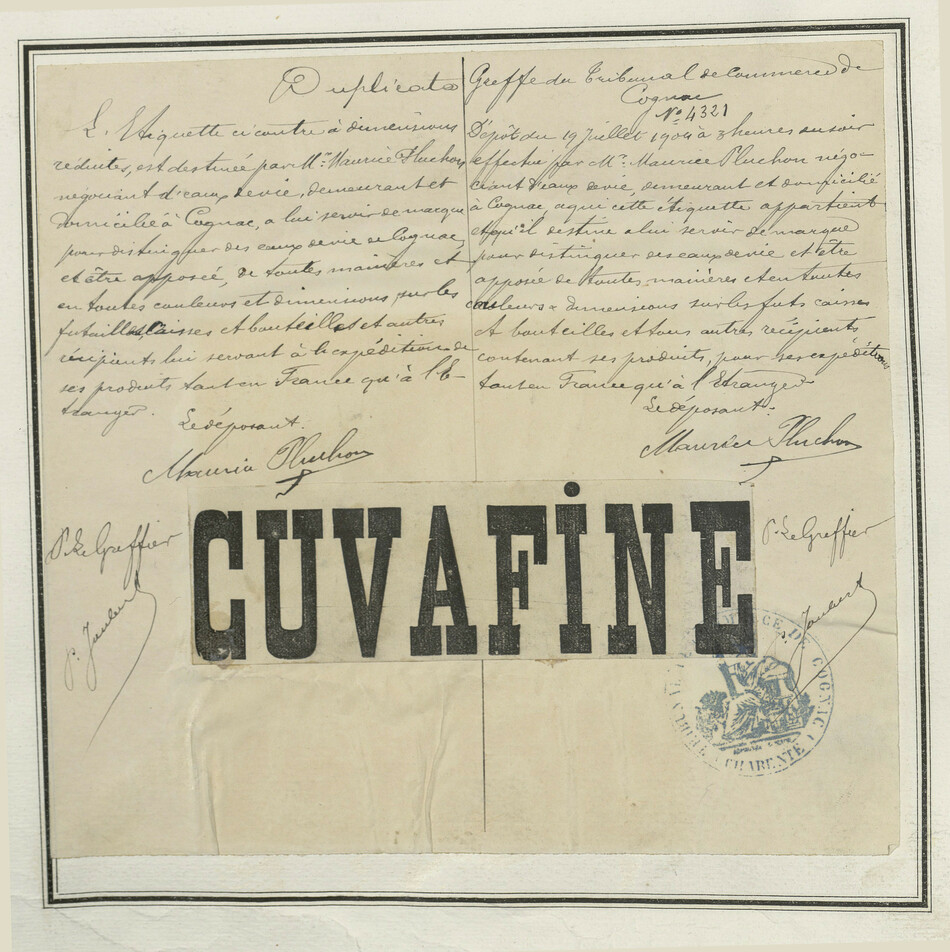 Duplicata
L'Etiquette ci contre à dimensions
réduites, est destinée par Mr. Maurice Pluchon
négociant d'eaux de vie, demeurant et
domicilié à Cognac, a lui servir de marque
pour distinguer des eaux de vie de Cognac,
et être apposée, de toutes manières et
en toutes couleurs et dimensions sur les
futailles, caisses et bouteilles et autres
récipients lui servant à l'expédition de
ses produits tant en France qu'à l'E-
tranger.
Le déposant.
Maurice Pluchon
P. Le Greffier
P. Joubert
Greffe du Tribunal de Commerce de
Cognac
No 4321
Dépôt du 19 Juillet 1904 à 3 heures du soir
effectué par Mr. Maurice Pluchon négo-
ciant d'eaux de vie, demeurant et domicilié
à Cognac, a qui cette étiquette appartient
et qu'il destine a lui servir de marque
pour distinguer ses eaux de vie et être
apposée de toutes manières et en toutes
couleurs & dimensions sur les futs caisses
et bouteilles et tous autres récipients
contenant ses produits, pour ses expéditions
tant en France qu'à l'Etranger.
Le déposant.
Maurice Pluchon
P. Le Greffier
P. Joubert
CUVAFINE
COMMERCE DE COGNAC
CHARENTE